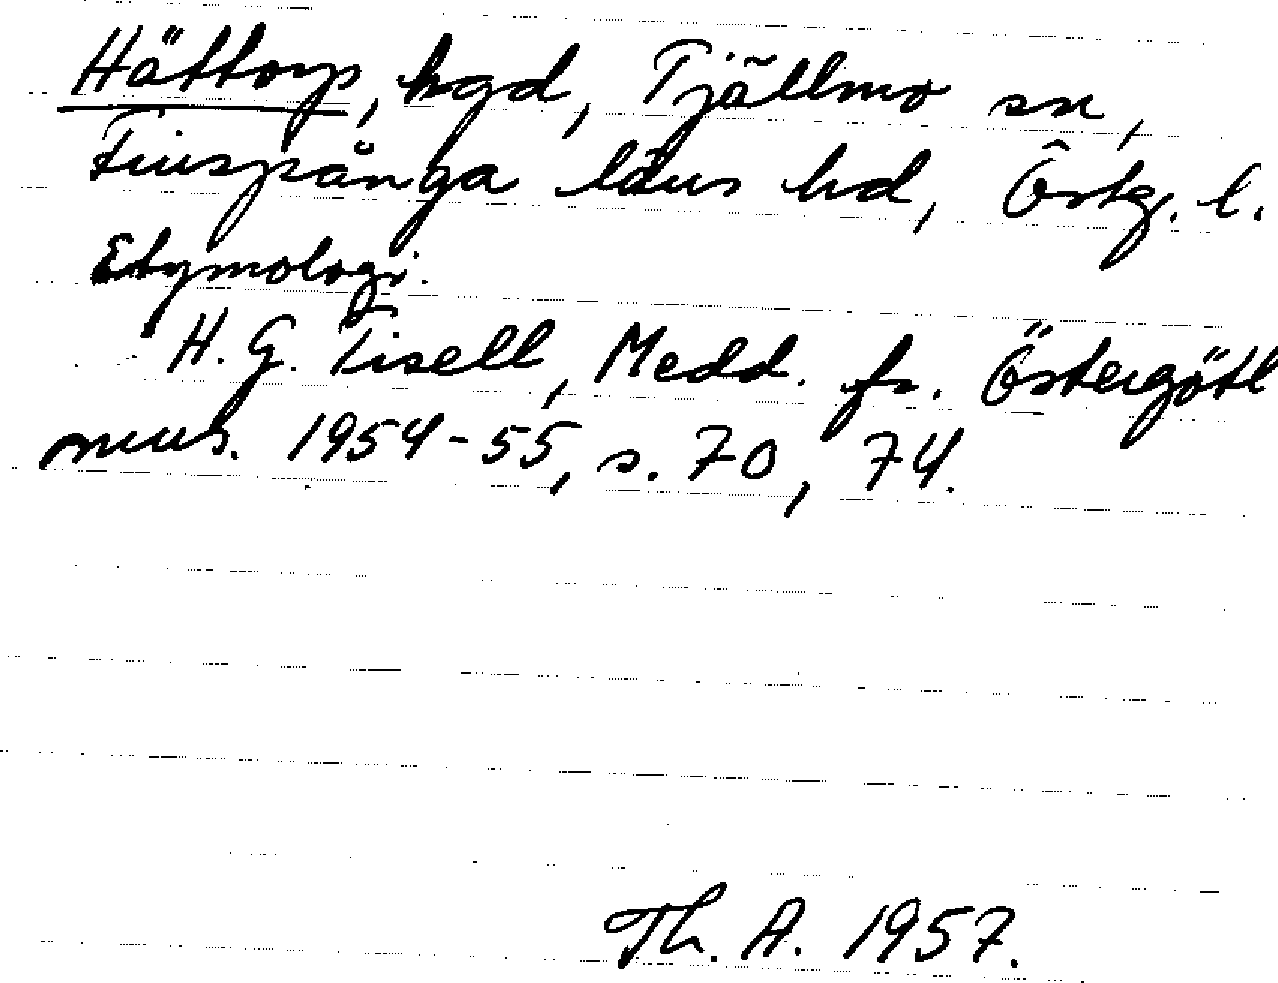 Hättorp, hgd, Tjällmo sn,
Finspånga läns hd, Östg. l.
Etymologi.
H. G. Tisell, Medd. fr. Östergötl
mus. 1954-55, s. 70, 74.
Th. A. 1957.